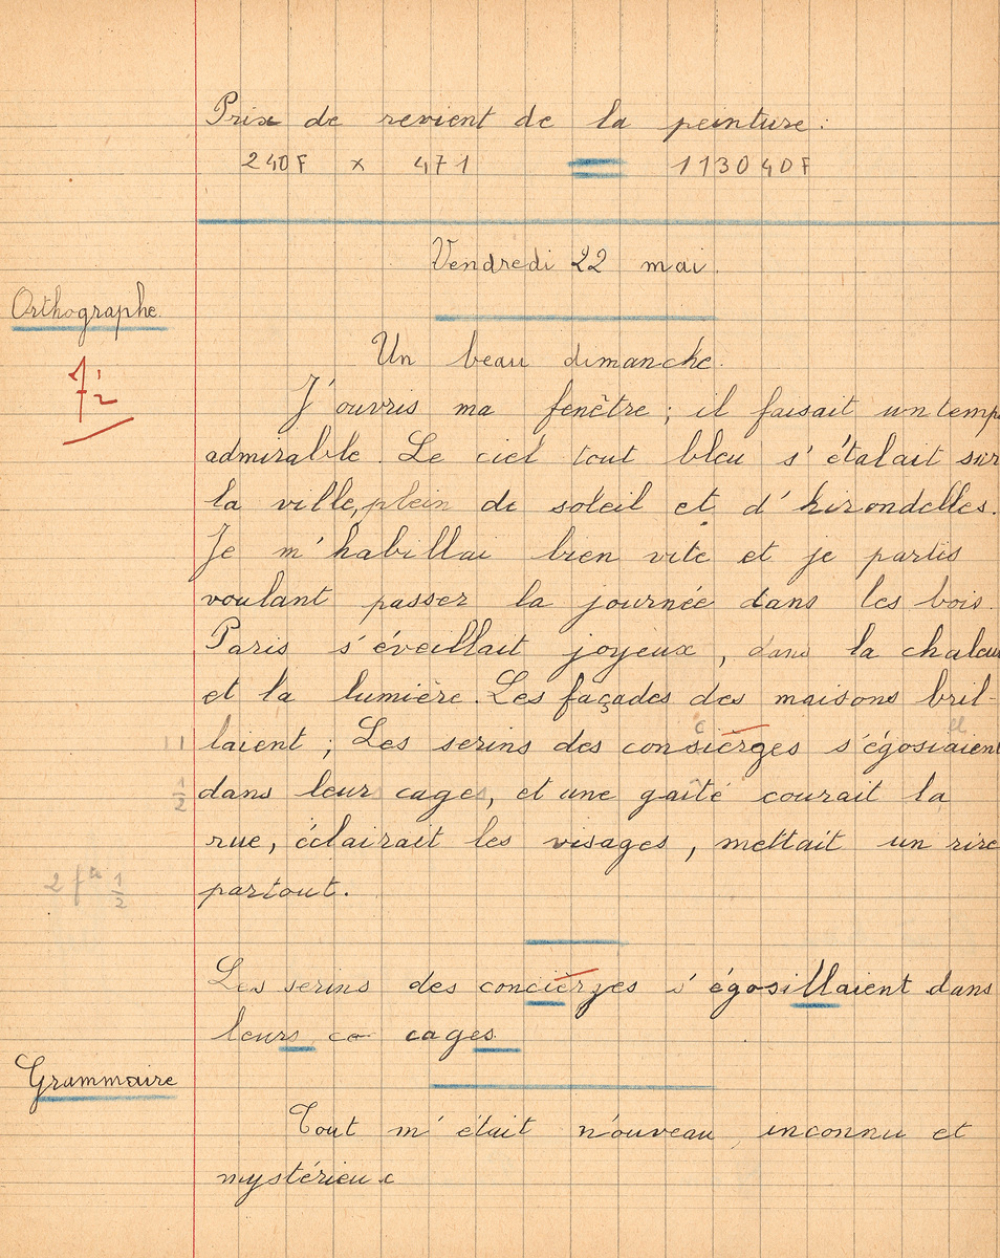 Prix de revient de la peinture :
240F x 471 = 113040F
Vendredi 22 mai.
Orthographe
7 1/2
Un beau dimanche.
J'ouvris ma fenêtre ; il faisait un temp
admirable. Le ciel tout bleu s'étalait sur
la ville, plein de soleil et d'hirondelles.
Je m'habillai bien vite et je partis
voulant passer la journée dans les bois.
Paris s'éveillait joyeux, dans la chaleu
et la lumière. Les façades des maisons bril-
c ll
11 laient ; Les serins des consièrges s'égosiaient
1/2 dans leurs cages, et une gaîté courait la
rue, éclairait les visages, mettait un rire
2 f tes 1/2 partout.
Les serins des concièrges s'égosillaient dans
leurs ca cages.
Grammaire
Tout m'était nouveau, inconnu et
mystérieux